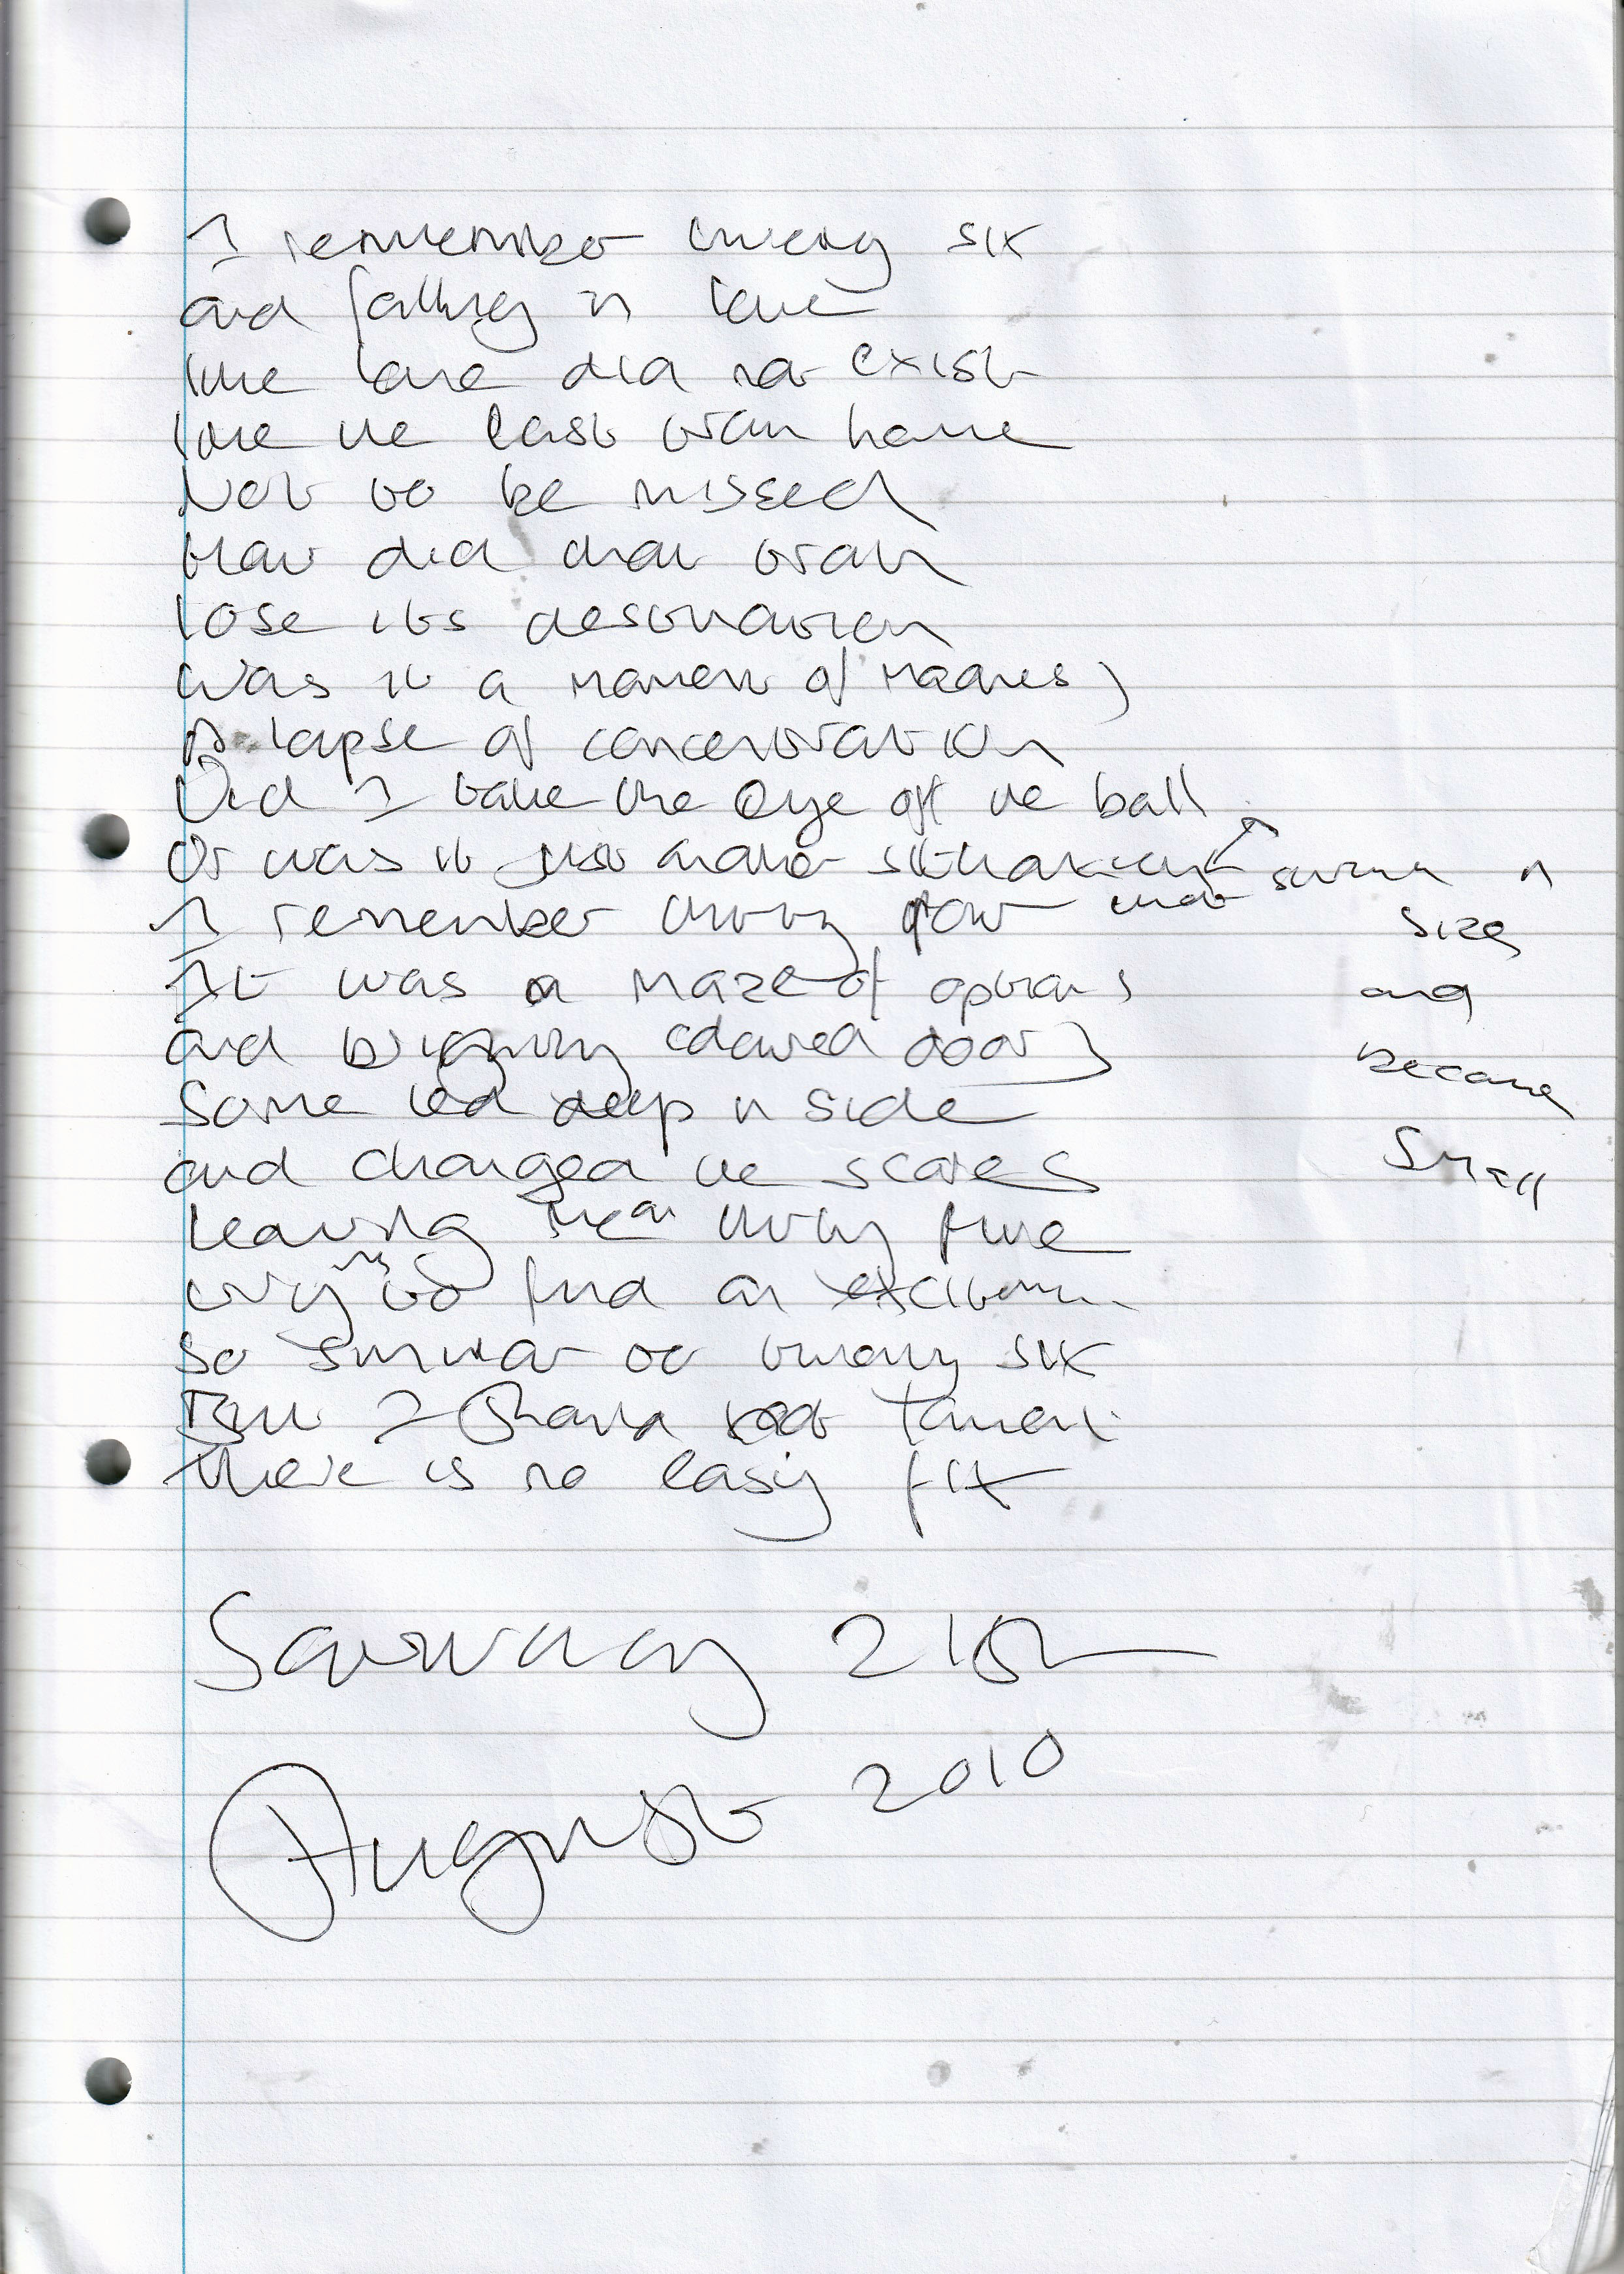 I remember twenty six
and falling in love
like love did not exist
like the last train home
Not to be missed
How did that train
lose its destination
Was it a moment of madness
A lapse of concentration
Did I take the eye off the ball
Or was it just another situation
that shrunk in
size
and
became
small
I remember thirty four
It was a maze of options
and brightly coloured doors
Some led deep inside
and changed the scores
leaving me at thirty five
trying to find an excitement
so similar to twenty six
But I found that
there is no easy fix
Saturday 21st
August 2010